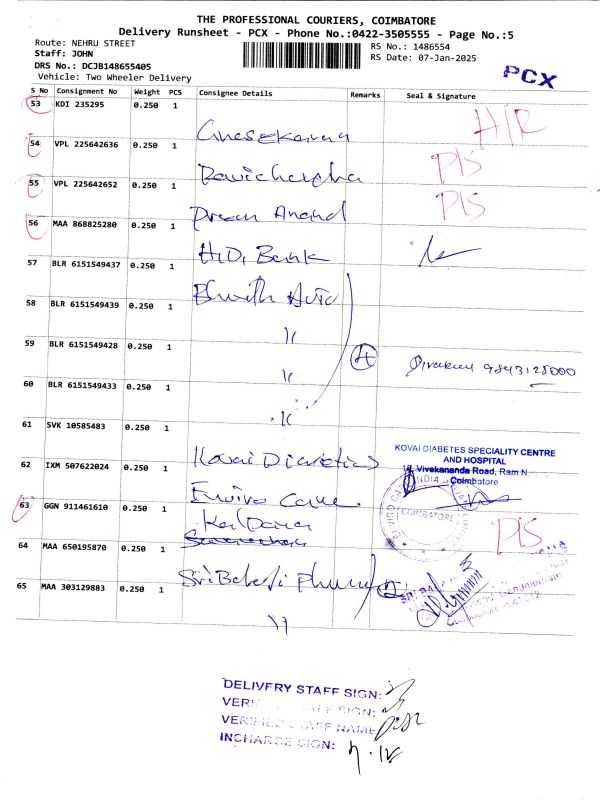 THE PROFESSIONAL COURIERS, COIMBATORE
Delivery Runsheet - PCX - Phone No.:0422-3505555 - Page No.:5
Route: NEHRU STREET
Staff: JOHN
DRS No.: DCJB148655405
Vehicle: Two Wheeler Delivery
RS No.: 1486554
RS Date: 07-Jan-2025
PCX
S No Consignment No Weight PCS Consignee Details Remarks Seal & Signature
53 KDI 235295 0.250 1 Gunasekaran H/R
54 VPL 225642636 0.250 1 P/S
55 VPL 225642652 0.250 1 Anand P/S
56 MAA 868825280 0.250 1 Bank
57 BLR 6151549437 0.250 1 Auto
58 BLR 6151549439 0.250 1 "
59 BLR 6151549428 0.250 1 " 4 9843128000
60 BLR 6151549433 0.250 1 "
61 SVK 10585483 0.250 1 Kovai Diabetics
KOVAI DIABETES SPECIALITY CENTRE
AND HOSPITAL
Vivekananda Road, Ram N
Coimbatore
62 IXM 507622024 0.250 1 Enviro Care
COIMBATORE
63 GGN 911461610 0.250 1 P/S
64 MAA 650195870 0.250 1 Sri Balaji 2
65 MAA 303129883 0.250 1 "
DELIVERY STAFF SIGN:
VERIFIED STAFF SIGN:
VERIFIED STAFF NAME
INCHARGE SIGN: